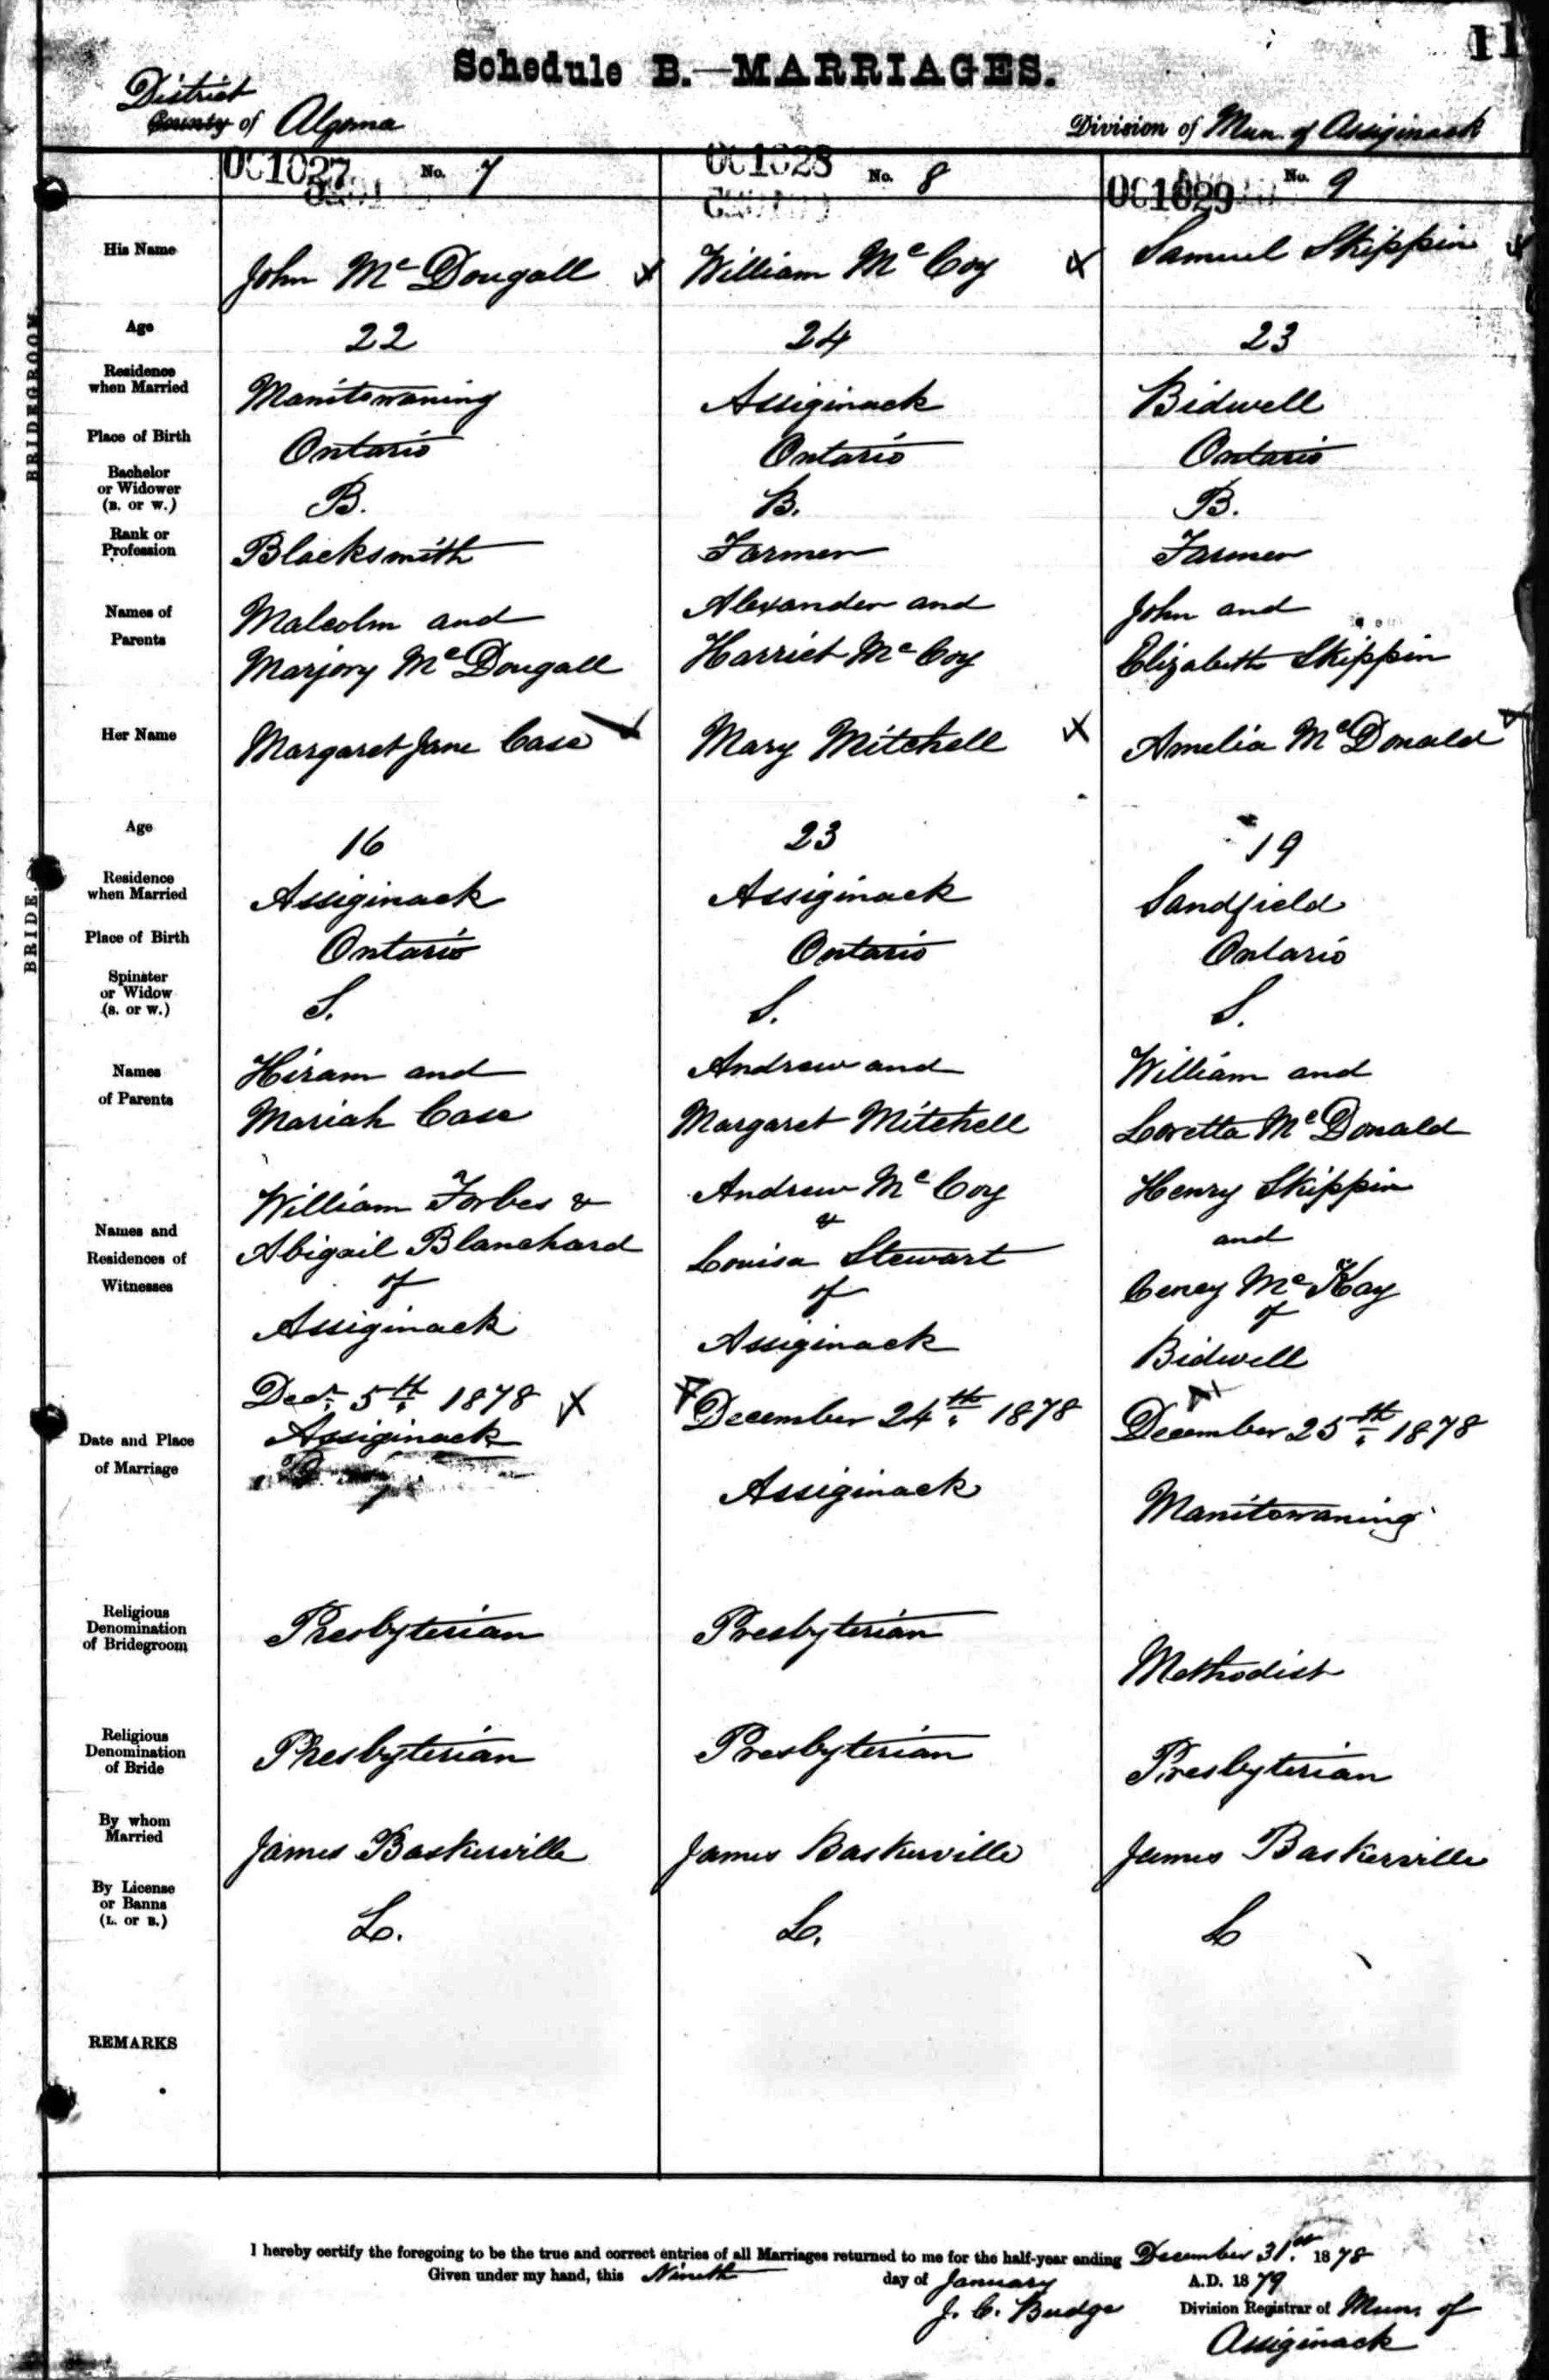 11
Schedule B.—MARRIAGES.
District
County of Algoma
Division of Mun. of Assiginack
001027 No. 7
001028 No. 8
001029 No. 9
BRIDEGROOM.
His Name
John McDougall
William McCoy
Samuel Skippin
Age
22
24
23
Residence
when Married
Manitowaning
Assiginack
Bidwell
Place of Birth
Ontario
Ontario
Ontario
Bachelor
or Widower
(B. or W.)
B.
B.
B.
Rank or
Profession
Blacksmith
Farmer
Farmer
Names of
Parents
Malcolm and
Marjory McDougall
Alexander and
Harriet McCoy
John and
Elizabeth Skippin
BRIDE.
Her Name
Margaret Jane Case
Mary Mitchell
Amelia McDonald
Age
16
23
19
Residence
when Married
Assiginack
Assiginack
Sandfield
Place of Birth
Ontario
Ontario
Ontario
Spinster
or Widow
(S. or W.)
S.
S.
S.
Names
of Parents
Hiram and
Mariah Case
Andrew and
Margaret Mitchell
William and
Loretta McDonald
Names and
Residences of
Witnesses
William Forbes &
Abigail Blanchard
of
Assiginack
Andrew McCoy
&
Louisa Stewart
of
Assiginack
Henry Skippin
and
Ceney McKay
of
Bidwell
Date and Place
of Marriage
Decr. 5th 1878
Assiginack
December 24th 1878
Assiginack
December 25th 1878
Manitowaning
Religious
Denomination
of Bridegroom
Presbyterian
Presbyterian
Methodist
Religious
Denomination
of Bride
Presbyterian
Presbyterian
Presbyterian
By whom
Married
James Baskerville
James Baskerville
James Baskerville
By License
or Banns
(L. or B.)
L.
L.
L
REMARKS
I hereby certify the foregoing to be the true and correct entries of all Marriages returned to me for the half-year ending December 31st 1878
Given under my hand, this Nineth day of January A.D. 1879
J. C. Budge Division Registrar of Mun. of
Assiginack